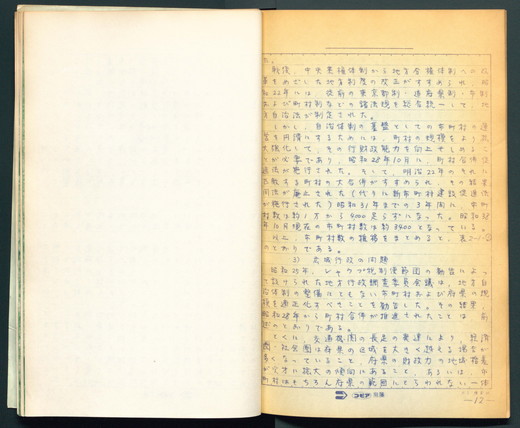 た。
戦後、中央集権体制から地方分権体制への改
革をめざした地方制度の改正がすすめられ、昭
和22年には、従前の東京都制・道府県制・市制
および町村制などの諸法規を総合統一して、地
方自治法が制定された。
しかし、自治体制の基盤としての市町村の運
営を円滑にするためには、町村の規模をより拡
大強化して、その行財政能力を向上せしめるこ
とが必要であり、昭和28年10月に、町村合併促
進法が施行された。そして、明治22年のそれに
比較する町村の大合併がすすめられ、その結果
同法が廃止された(代りに新市町村建設促進法
が施行された)昭和31年までの3年間に、市町
村数は約1万から4000足らずになった。昭和38
年10月現在の市町村数は約3400となっている。
以上、市町村数の推移をまとめると、表2-1-
のとおりである。
3) 広域行政の問題
昭和25年、シャウプ税制使節団の勧告によ
って設けられた地方行政調査委員会議は、地方自
治体制の整備にともない市町村および府県の規
模を適正化すべきことを勧告した。その結果、
昭和28年から町村合併が推進されたことは、前
述のとおりである。
とくに、交通機関の長足の発達により、経済
圏・社会圏は府県の区域を大きく越える場合が
多くなっていること、府県の財政力の地域格差
が次第に拡大の傾向にあること、あるいは、市
町村はもちろん府県の範囲にとらわれない一体
コピア
—12—